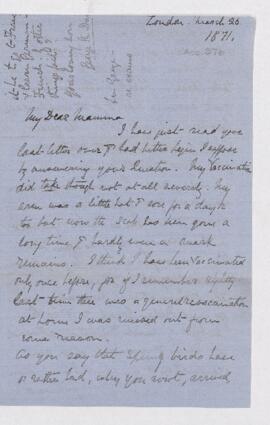 London. March 20.
1871.
My Dear Mamma
I have just read your
last letter over & had better begin I suppose
by answering your Question. My Vaccination
did take though not at all severely. My
arm was a little hot & sore for a day or
two but now the scab has been gone a
long time, & hardly even a mark
remains. I think I have been Vaccinated
only once before, for if I remember rightly
last time there was a general revaccination
at home I was missed out from
some reason.
As you say that Spring birds have
or rather had, when you wrote, arrived,